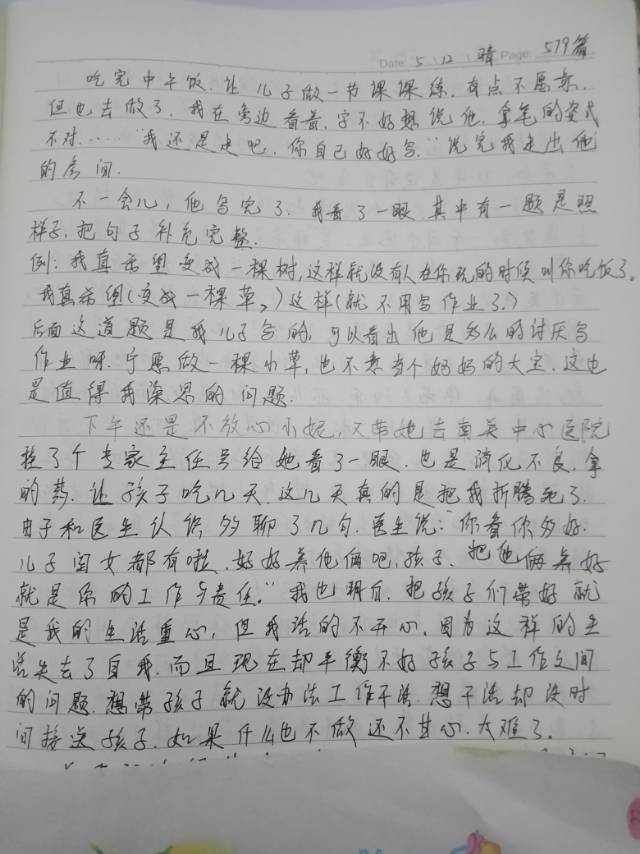 Date 5.12 晴 Page 579篇
吃完中午饭，让儿子做一节课课练，有点不愿意，
但也去做了，我在旁边看着，字不好想说他，拿笔的姿式
不对……"我还是走吧，你自己好好写。"说完我走出他
的房间.
不一会儿，他写完了，我看了一眼，其中有一题是照
样子，把句子补充完整.
例：我真希望变成一棵树，这样就没有人在你玩的时候叫你吃饭了。
我真希望(变成一棵草，)这样(就不用写作业了。)
后面这道题是我儿子写的，可以看出他是多么的讨厌写
作业呀，宁愿做一棵小草，也不愿当个好好的大宝，这也
是值得我深思的问题.
下午还是不放心小妮，又带她去南关中心医院
挂了个专家主任号给她看了一眼，也是消化不良，拿
的药，让孩子吃几天，这几天真的是把我折腾死了.
由于和医生认识，多聊了几句，医生说："你看你多好.
儿子闺女都有啦，好好养他俩吧，孩子，把他俩养好
就是你的工作与责任。"我也明白，把孩子们带好就
是我的生活重心，但我活的不开心，因为这样的生
活失去了自我，而且现在却平衡不好孩子与工作之间
的问题，想带孩子就没办法工作干活，想干活却没时
间接送孩子，如果什么也不做还不甘心，太难了.